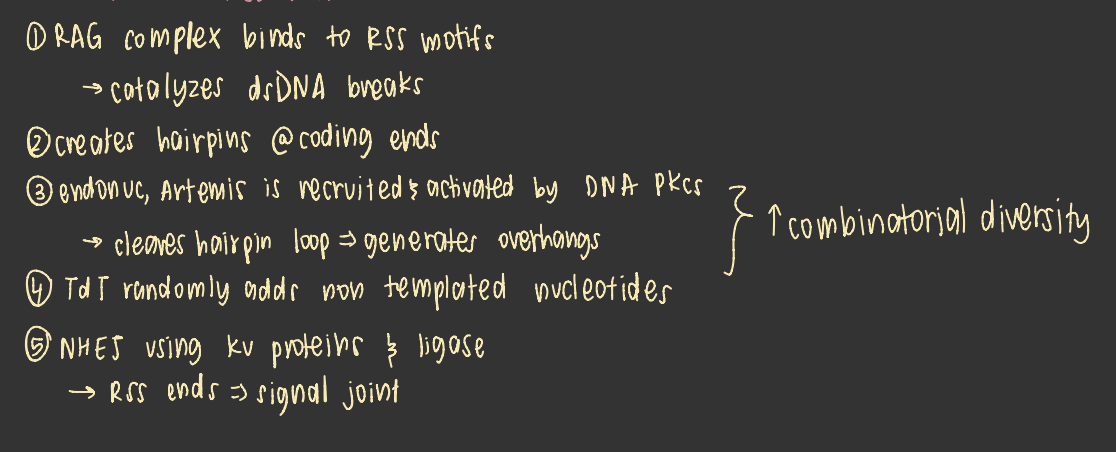 ① RAG complex binds to RSS motifs
→ catalyzes dsDNA breaks
② creates hairpins @ coding ends
③ endonuc, Artemis is recruited & activated by DNA PKcs
→ cleaves hairpin loop ⇒ generates overhangs
↑ combinatorial diversity
④ TdT randomly adds non templated nucleotides
⑤ NHEJ using Ku proteins & ligase
→ RSS ends ⇒ signal joint